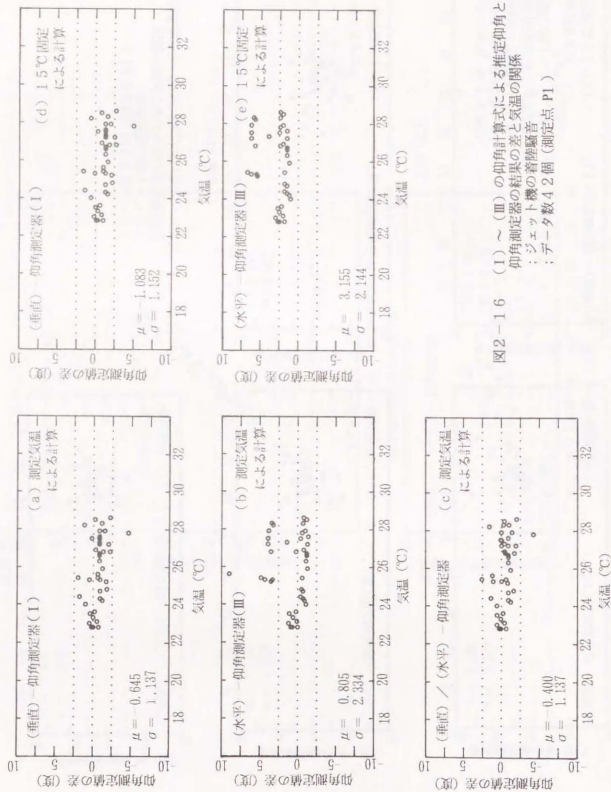 (垂直) − 仰角測定器(Ⅰ)
(a) 測定気温
による計算
μ = −0.645
σ = 1.137
仰角測定値の差 (度)
10
5
0
−5
−10
18
20
22
24
26
28
30
32
気温 (℃)
(水平) − 仰角測定器(Ⅲ)
(b) 測定気温
による計算
μ = 0.805
σ = 2.334
仰角測定値の差 (度)
10
5
0
−5
−10
18
20
22
24
26
28
30
32
気温 (℃)
(垂直) / (水平) − 仰角測定器
(c) 測定気温
による計算
μ = −0.400
σ = 1.137
仰角測定値の差 (度)
10
5
0
−5
−10
18
20
22
24
26
28
30
32
気温 (℃)
(垂直) − 仰角測定器(Ⅰ)
(d) 15℃固定
による計算
μ = −1.083
σ = 1.152
仰角測定値の差 (度)
10
5
0
−5
−10
18
20
22
24
26
28
30
32
気温 (℃)
(水平) − 仰角測定器(Ⅲ)
(e) 15℃固定
による計算
μ = 3.155
σ = 2.144
仰角測定値の差 (度)
10
5
0
−5
−10
18
20
22
24
26
28
30
32
気温 (℃)
図2−16 (Ⅰ) ~ (Ⅲ) の仰角計算式による推定仰角と
仰角測定器の結果の差と気温の関係
; ジェット機の着陸騒音
; データ数42個 (測定点 P1)